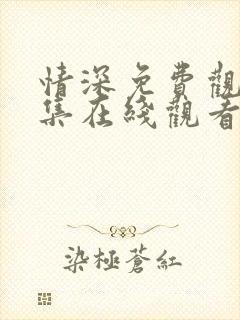 情深免費觀
集在綫觀看
染極蒼紅